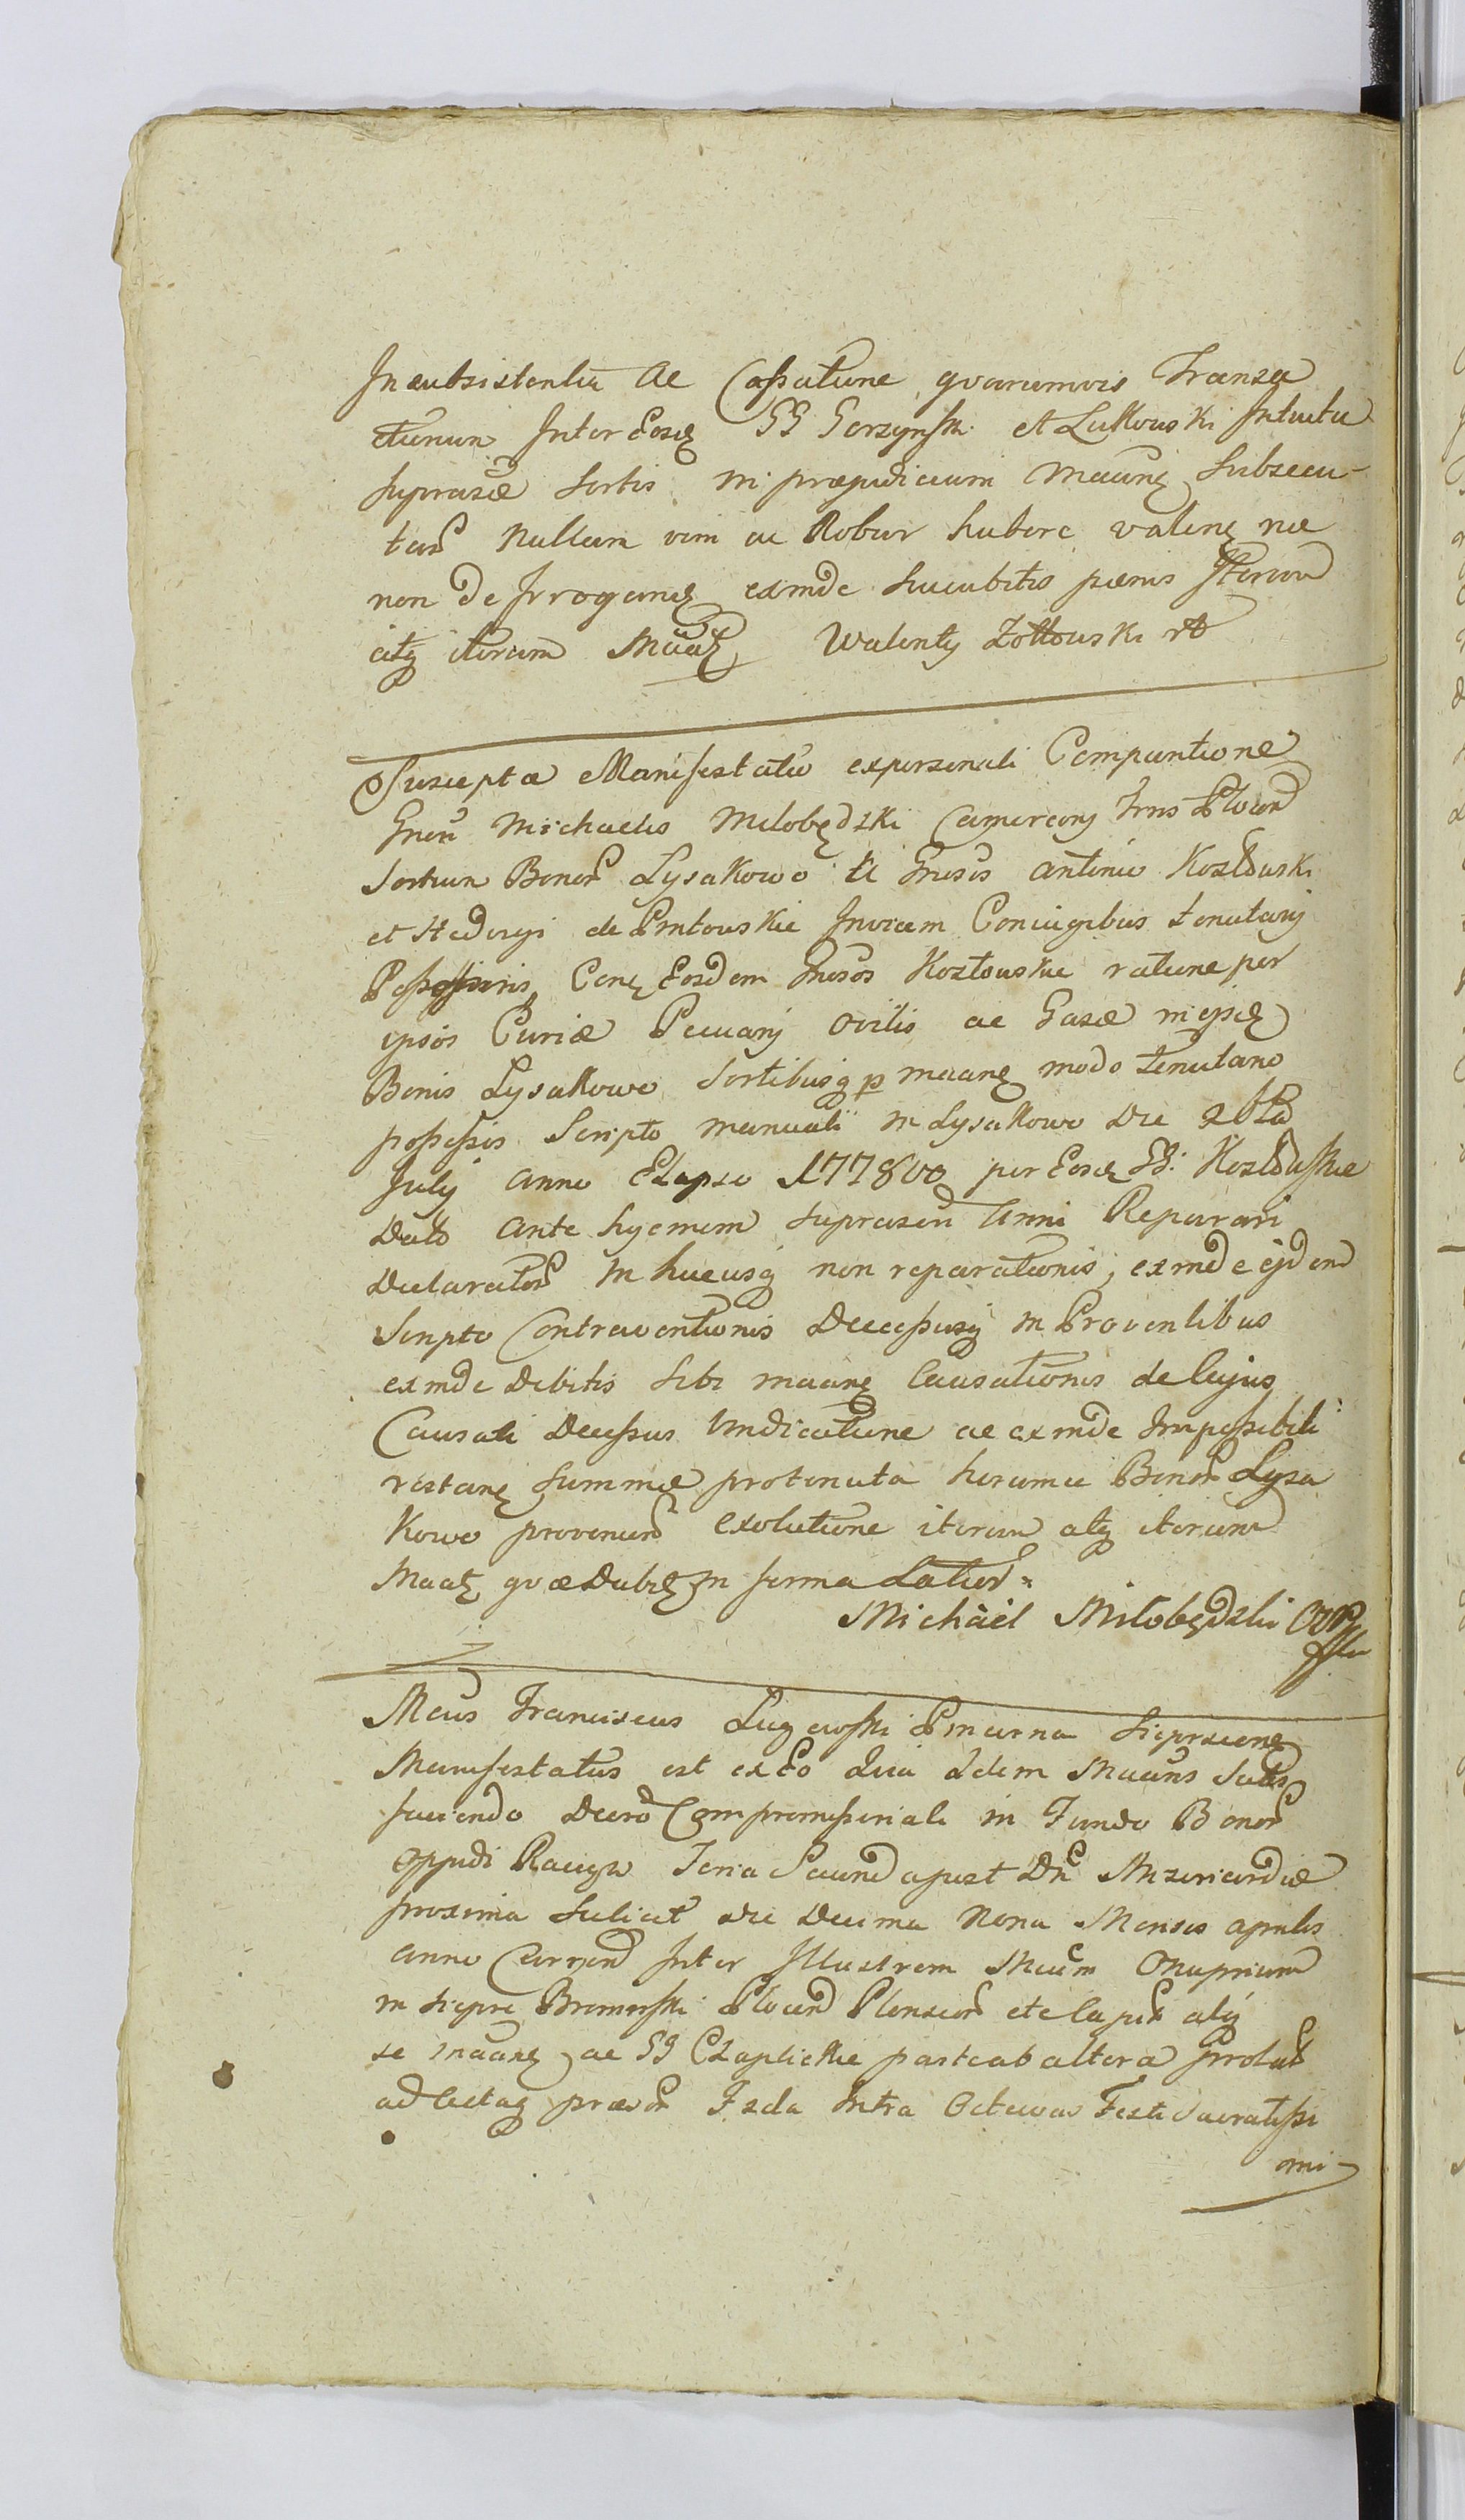 Insubsistentia ac Cassatione qvarumvis Transa
ctionum Inter Eosd GG Gorzynski et Lukowski Intuitu
suprascae Sortis in praejudicium Maanę subsecu-
tar nullam vim ac Robur habere valenę nec
non de Irroganę exinde succubitis paenis Iterum
atq iterum Maatę Walenty Zołtowski
Suscepta Manifestatio ex personali Comparitione
Gneri Michaelis Miłobędzki Camerarij Trris Plocen
Sortium Bonor Lysakowo a Gnosis Antonio Kozłowski
et Hedvigi de Pintowskie Invicem Conjugibus tenutarij
Possessoris, Conę Eosdem Gnosos Kozłowskie ratione per
ipsos Curiae Pecuarij Ovilis ac Casae in ijsdę
Bonis Lysakowo Sortibusq p maanę modo tenutario
possessis Scripto manuali in Lysakowo Die 26ta
Julij Anno Elapso 177800 per Eosd GG Kozłowskie
Dato ante hyemem suprascri Anni Reparari
Declarator in hucusq non reparationis, exinde ejdem
Scripto Contraventionis Decessusq in Proventibus
exinde Debitis sibi maanę Causationis de Cujus
Causati Decessus Vindicatione ac exinde Impossibili
restanę summae pro tenuta horumce Bonor Lysa
kowo provenien Exolutione iterum atq iterum
Maatę qvae Dabitę in forma Latior
Michäel Miłobędzki
Mcus Franciscus Lugowski Pincerna Sieprscenę
Manifestatus est ex Eo Quia Idem Maans Satis
faciendo Decro Compromissoriali in Fundo Bonor
Oppidi Raciąz Feria Secunda post Dn Misericordiae
proxima scilicet die Decima Nona Mensis Aprilis
Anno Curren Inter Illustrem Mcum Onuprium
in Siepre Bromirski Plocen Plonscen etc Capit atq
se Maanę ac GG Czaplickie parte ab altera prolat
ad Actaq praesen Fzda Intra Octavas Festi Sacratissi
mi